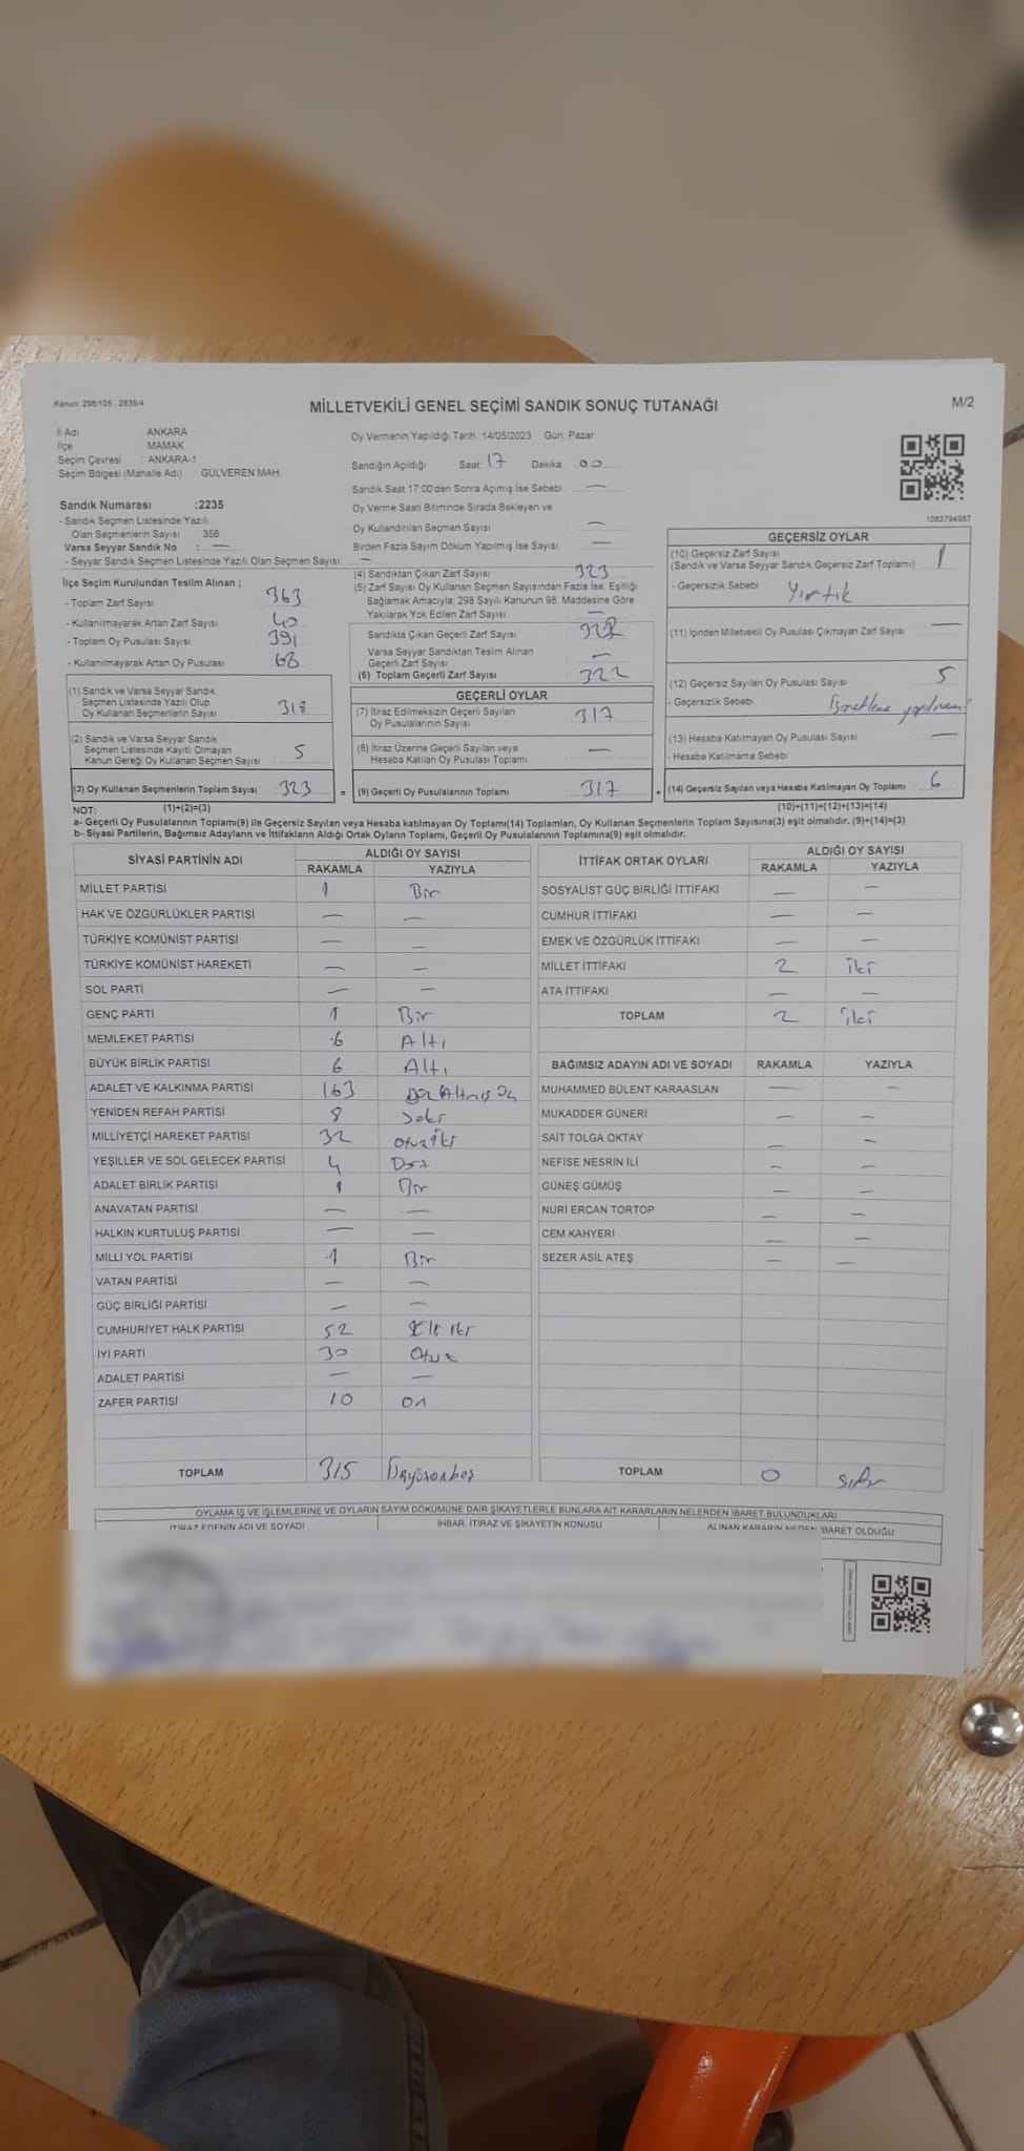 Kanun: 298/105 - 2839/4
MİLLETVEKİLİ GENEL SEÇİMİ SANDIK SONUÇ TUTANAĞI
M/2
İl Adı ANKARA
İlçe MAMAK
Seçim Çevresi : ANKARA-1
Seçim Bölgesi (Mahalle Adı) GÜLVEREN MAH.
Oy Vermenin Yapıldığı Tarih : 14/05/2023 Gün: Pazar
Sandığın Açıldığı Saat 17 Dakika 00
Sandık Saat 17:00'den Sonra Açılmış İse Sebebi —
Oy Verme Saati Bitiminde Sırada Bekleyen ve
Oy Kullandırılan Seçmen Sayısı —
Birden Fazla Sayım Döküm Yapılmış İse Sayısı —
Sandık Numarası :2235
- Sandık Seçmen Listesinde Yazılı
Olan Seçmenlerin Sayısı 356
Varsa Seyyar Sandık No : —
- Seyyar Sandık Seçmen Listesinde Yazılı Olan Seçmen Sayısı —
İlçe Seçim Kurulundan Teslim Alınan ;
- Toplam Zarf Sayısı 363
- Kullanılmayarak Artan Zarf Sayısı 40
- Toplam Oy Pusulası Sayısı 391
- Kullanılmayarak Artan Oy Pusulası 68
(1) Sandık ve Varsa Seyyar Sandık
Seçmen Listesinde Yazılı Olup
Oy Kullanan Seçmenlerin Sayısı 318
(2) Sandık ve Varsa Seyyar Sandık
Seçmen Listesinde Kayıtlı Olmayan
Kanun Gereği Oy Kullanan Seçmen Sayısı 5
(3) Oy Kullanan Seçmenlerin Toplam Sayısı 323 =
(4) Sandıktan Çıkan Zarf Sayısı 323
(5) Zarf Sayısı Oy Kullanan Seçmen Sayısından Fazla İse, Eşitliği
Sağlamak Amacıyla, 298 Sayılı Kanunun 98. Maddesine Göre
Yakılarak Yok Edilen Zarf Sayısı —
Sandıkta Çıkan Geçerli Zarf Sayısı 322
Varsa Seyyar Sandıktan Teslim Alınan
Geçerli Zarf Sayısı —
(6) Toplam Geçerli Zarf Sayısı 322
GEÇERLİ OYLAR
(7) İtiraz Edilmeksizin Geçerli Sayılan
Oy Pusulalarının Sayısı 317
(8) İtiraz Üzerine Geçerli Sayılan veya
Hesaba Katılan Oy Pusulası Toplamı —
(9) Geçerli Oy Pusulalarının Toplamı 317 +
1083794987
GEÇERSİZ OYLAR
(10) Geçersiz Zarf Sayısı 1
(Sandık ve Varsa Seyyar Sandık Geçersiz Zarf Toplamı)
- Geçersizlik Sebebi Yırtık
(11) İçinden Milletvekili Oy Pusulası Çıkmayan Zarf Sayısı —
(12) Geçersiz Sayılan Oy Pusulası Sayısı 5
- Geçersizlik Sebebi
(13) Hesaba Katılmayan Oy Pusulası Sayısı —
- Hesaba Katılmama Sebebi
(14) Geçersiz Sayılan veya Hesaba Katılmayan Oy Toplamı 6
NOT: (1)+(2)=(3) (10)+(11)+(12)+(13)=(14)
a- Geçerli Oy Pusulalarının Toplamı(9) ile Geçersiz Sayılan veya Hesaba katılmayan Oy Toplamı(14) Toplamları, Oy Kullanan Seçmenlerin Toplam Sayısına(3) eşit olmalıdır. (9)+(14)=(3)
b- Siyasi Partilerin, Bağımsız Adayların ve İttifakların Aldığı Ortak Oyların Toplamı, Geçerli Oy Pusulalarının Toplamına(9) eşit olmalıdır.
SİYASİ PARTİNİN ADI ALDIĞI OY SAYISI
RAKAMLA YAZIYLA
MİLLET PARTİSİ 1 Bir
HAK VE ÖZGÜRLÜKLER PARTİSİ — —
TÜRKİYE KOMÜNİST PARTİSİ — —
TÜRKİYE KOMÜNİST HAREKETİ — —
SOL PARTİ — —
GENÇ PARTİ 1 Bir
MEMLEKET PARTİSİ 6 Altı
BÜYÜK BİRLİK PARTİSİ 6 Altı
ADALET VE KALKINMA PARTİSİ 163
YENİDEN REFAH PARTİSİ 8 Sekiz
MİLLİYETÇİ HAREKET PARTİSİ 32 otuziki
YEŞİLLER VE SOL GELECEK PARTİSİ 4 Dört
ADALET BİRLİK PARTİSİ 1 Bir
ANAVATAN PARTİSİ — —
HALKIN KURTULUŞ PARTİSİ — —
MİLLİ YOL PARTİSİ 1 Bir
VATAN PARTİSİ — —
GÜÇ BİRLİĞİ PARTİSİ — —
CUMHURİYET HALK PARTİSİ 52 Elli iki
İYİ PARTİ 30 Otuz
ADALET PARTİSİ — —
ZAFER PARTİSİ 10 On
TOPLAM 315 Üçyüzonbeş
İTTİFAK ORTAK OYLARI ALDIĞI OY SAYISI
RAKAMLA YAZIYLA
SOSYALİST GÜÇ BİRLİĞİ İTTİFAKI — —
CUMHUR İTTİFAKI — —
EMEK VE ÖZGÜRLÜK İTTİFAKI — —
MİLLET İTTİFAKI 2 iki
ATA İTTİFAKI — —
TOPLAM 2 iki
BAĞIMSIZ ADAYIN ADI VE SOYADI RAKAMLA YAZIYLA
MUHAMMED BÜLENT KARAASLAN — —
MUKADDER GÜNERİ — —
SAİT TOLGA OKTAY — —
NEFİSE NESRİN İLİ — —
GÜNEŞ GÜMÜŞ — —
NURİ ERCAN TORTOP — —
CEM KAHYERİ — —
SEZER ASİL ATEŞ — —
TOPLAM 0 sıfır
OYLAMA İŞ VE İŞLEMLERİNE VE OYLARIN SAYIM DÖKÜMÜNE DAİR ŞİKAYETLERLE BUNLARA AİT KARARLARIN NELERDEN İBARET BULUNDUKLARI
İTİRAZ EDENİN ADI VE SOYADI İHBAR, İTİRAZ VE ŞİKAYETİN KONUSU ALINAN KARARIN NEDEN İBARET OLDUĞU